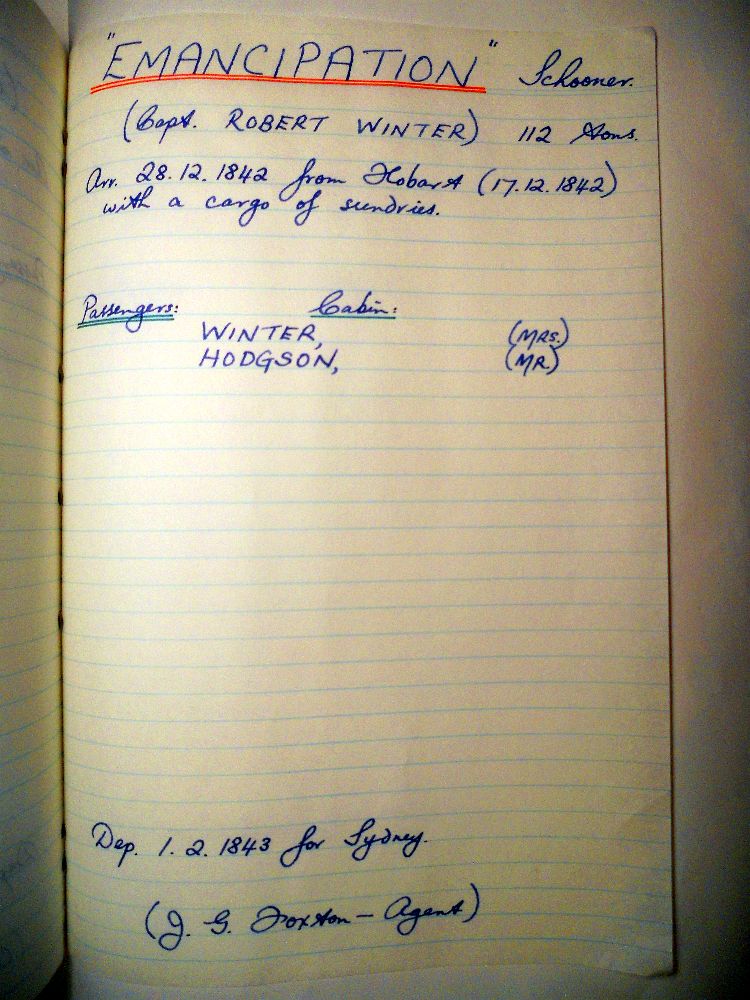 "EMANCIPATION" Schooner.
(Capt. ROBERT WINTER) 112 Tons.
Arr. 28.12.1842 from Hobart (17.12.1842)
with a cargo of sundries.
Passengers: Cabin:
WINTER, (MRS.)
HODGSON, (MR.)
Dep. 1.2.1843 for Sydney.
(J. G. Foxton - Agent)